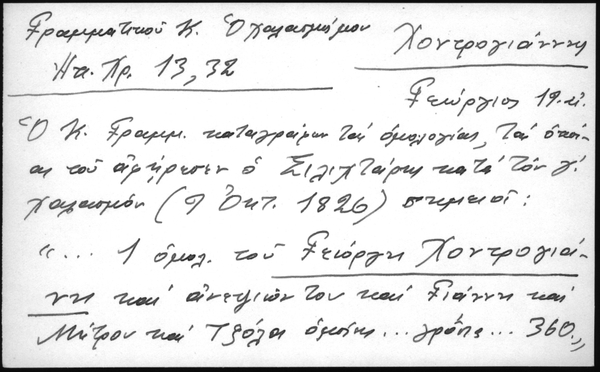 Γραμματικού Κ. Ὁ χαλασμός μου
Χοντρογιάννης
Ηπ. Χρ. 13, 32
Γεώργιος 19.αἰ.
Ὁ Κ. Γραμμ. καταγράφων τάς ὁμολογίας, τάς ὁποί-
ας τοῦ ἀφήρεσεν ὁ Σιλιχτάρης κατά τόν γ΄
χαλασμόν (9 Ὀκτ. 1826) σημειοῖ:
"... 1 ὁμολ. τοῦ Γεώργη Χοντρογιά-
ννη καί ἀνεψιῶν του καί Γιάννη καί
Μήτρου καί Τζόλα ὁμοίως... γρόσ.... 360.,,